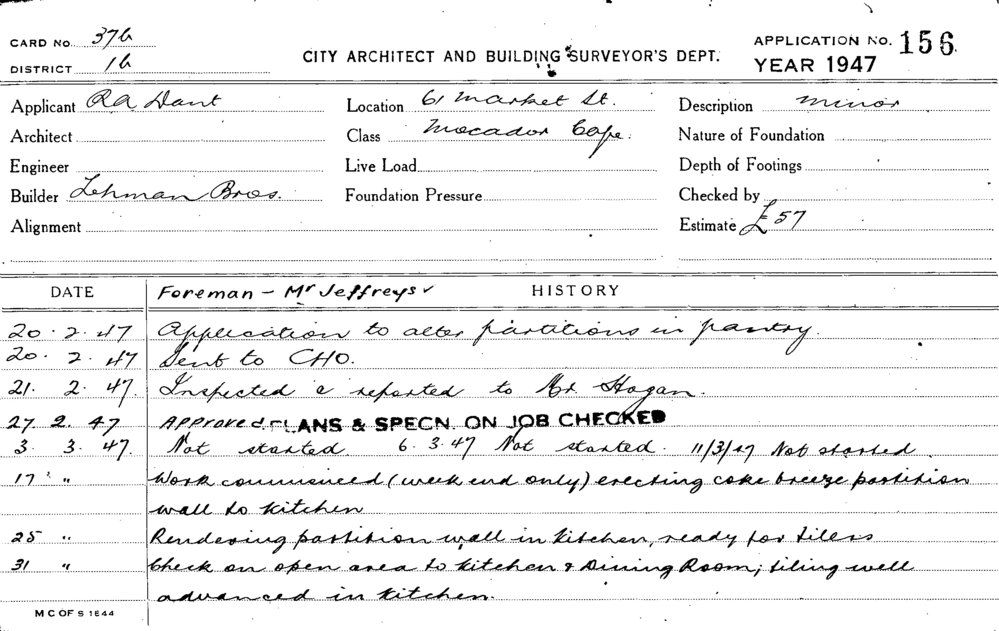 CARD No. 376
DISTRICT 16
CITY ARCHITECT AND BUILDING SURVEYOR'S DEPT.
APPLICATION NO. 156
YEAR 1947
Applicant RA Dant Location 61 Market St. Description minor
Architect Class Mocador Cafe. Nature of Foundation
Engineer Live Load Depth of Footings
Builder Lehman Bros. Foundation Pressure Checked by
Alignment Estimate £57
DATE Foreman - Mr Jeffreys HISTORY
20. 2. 47 Application to alter partitions in pantry.
20. 2. 47 Sent to CHO.
21. 2. 47. Inspected & reported to Mr. Hogan.
27. 2. 47 Approved PLANS & SPECN. ON JOB CHECKED
3. 3. 47. Not started 6. 3. 47 Not started. 11/3/47 Not started.
17 " Work commenced (week end only) erecting coke breeze partition
wall to kitchen
25 " Rendering partition wall in kitchen, ready for tilers
31 " Check on open area to kitchen & Dining Room; tiling well
advanced in kitchen.
M C OF S 1844